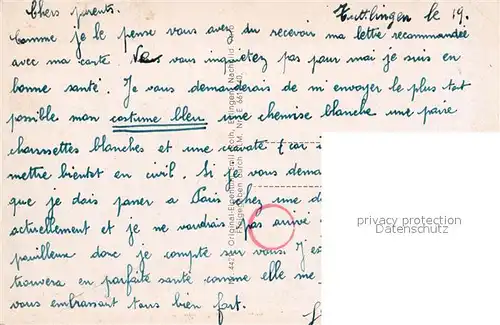 Tuttlingen le 19.
Chers parents.
Comme je le pense vous avez du recevoir ma lettre recommandée
avec ma carte Ne vous inquietez pas pour moi je suis en
bonne santé. Je vous demanderais de m'envoyer le plus tot
possible mon costume bleu une chemise blanche une paire
chaussettes blanches et une cravate (car
mettre bientot en civil. Si je vous dema
que je dois passer a Paris chez une d
actuellement et je ne voudrais pas arrivé
pouilleux donc je compte sur vous. J'es
trouvera en parfaite santé comme elle me
vous embrassant tous bien fort.
privacy protection
Datenschutz